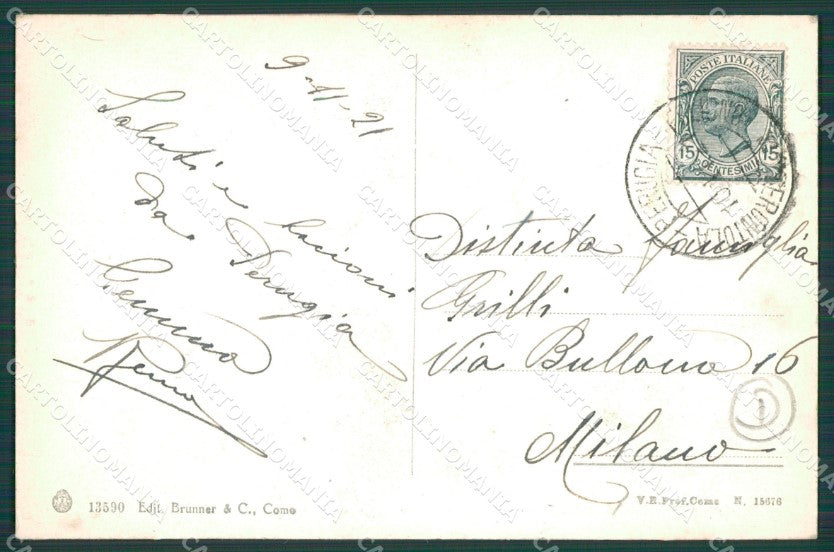 9-11-21
Saluti e bacioni
da Perugia
Gemma
POSTE ITALIANE
15 CENTESIMI 15
PERUGIA
TERONTOLA
Distinta famiglia
Grilli
Via Bullona 16
Milano
1
13590 Edit. Brunner & C., Como
V.E.Prof.Como N. 15676
CARTOLINOMANIA